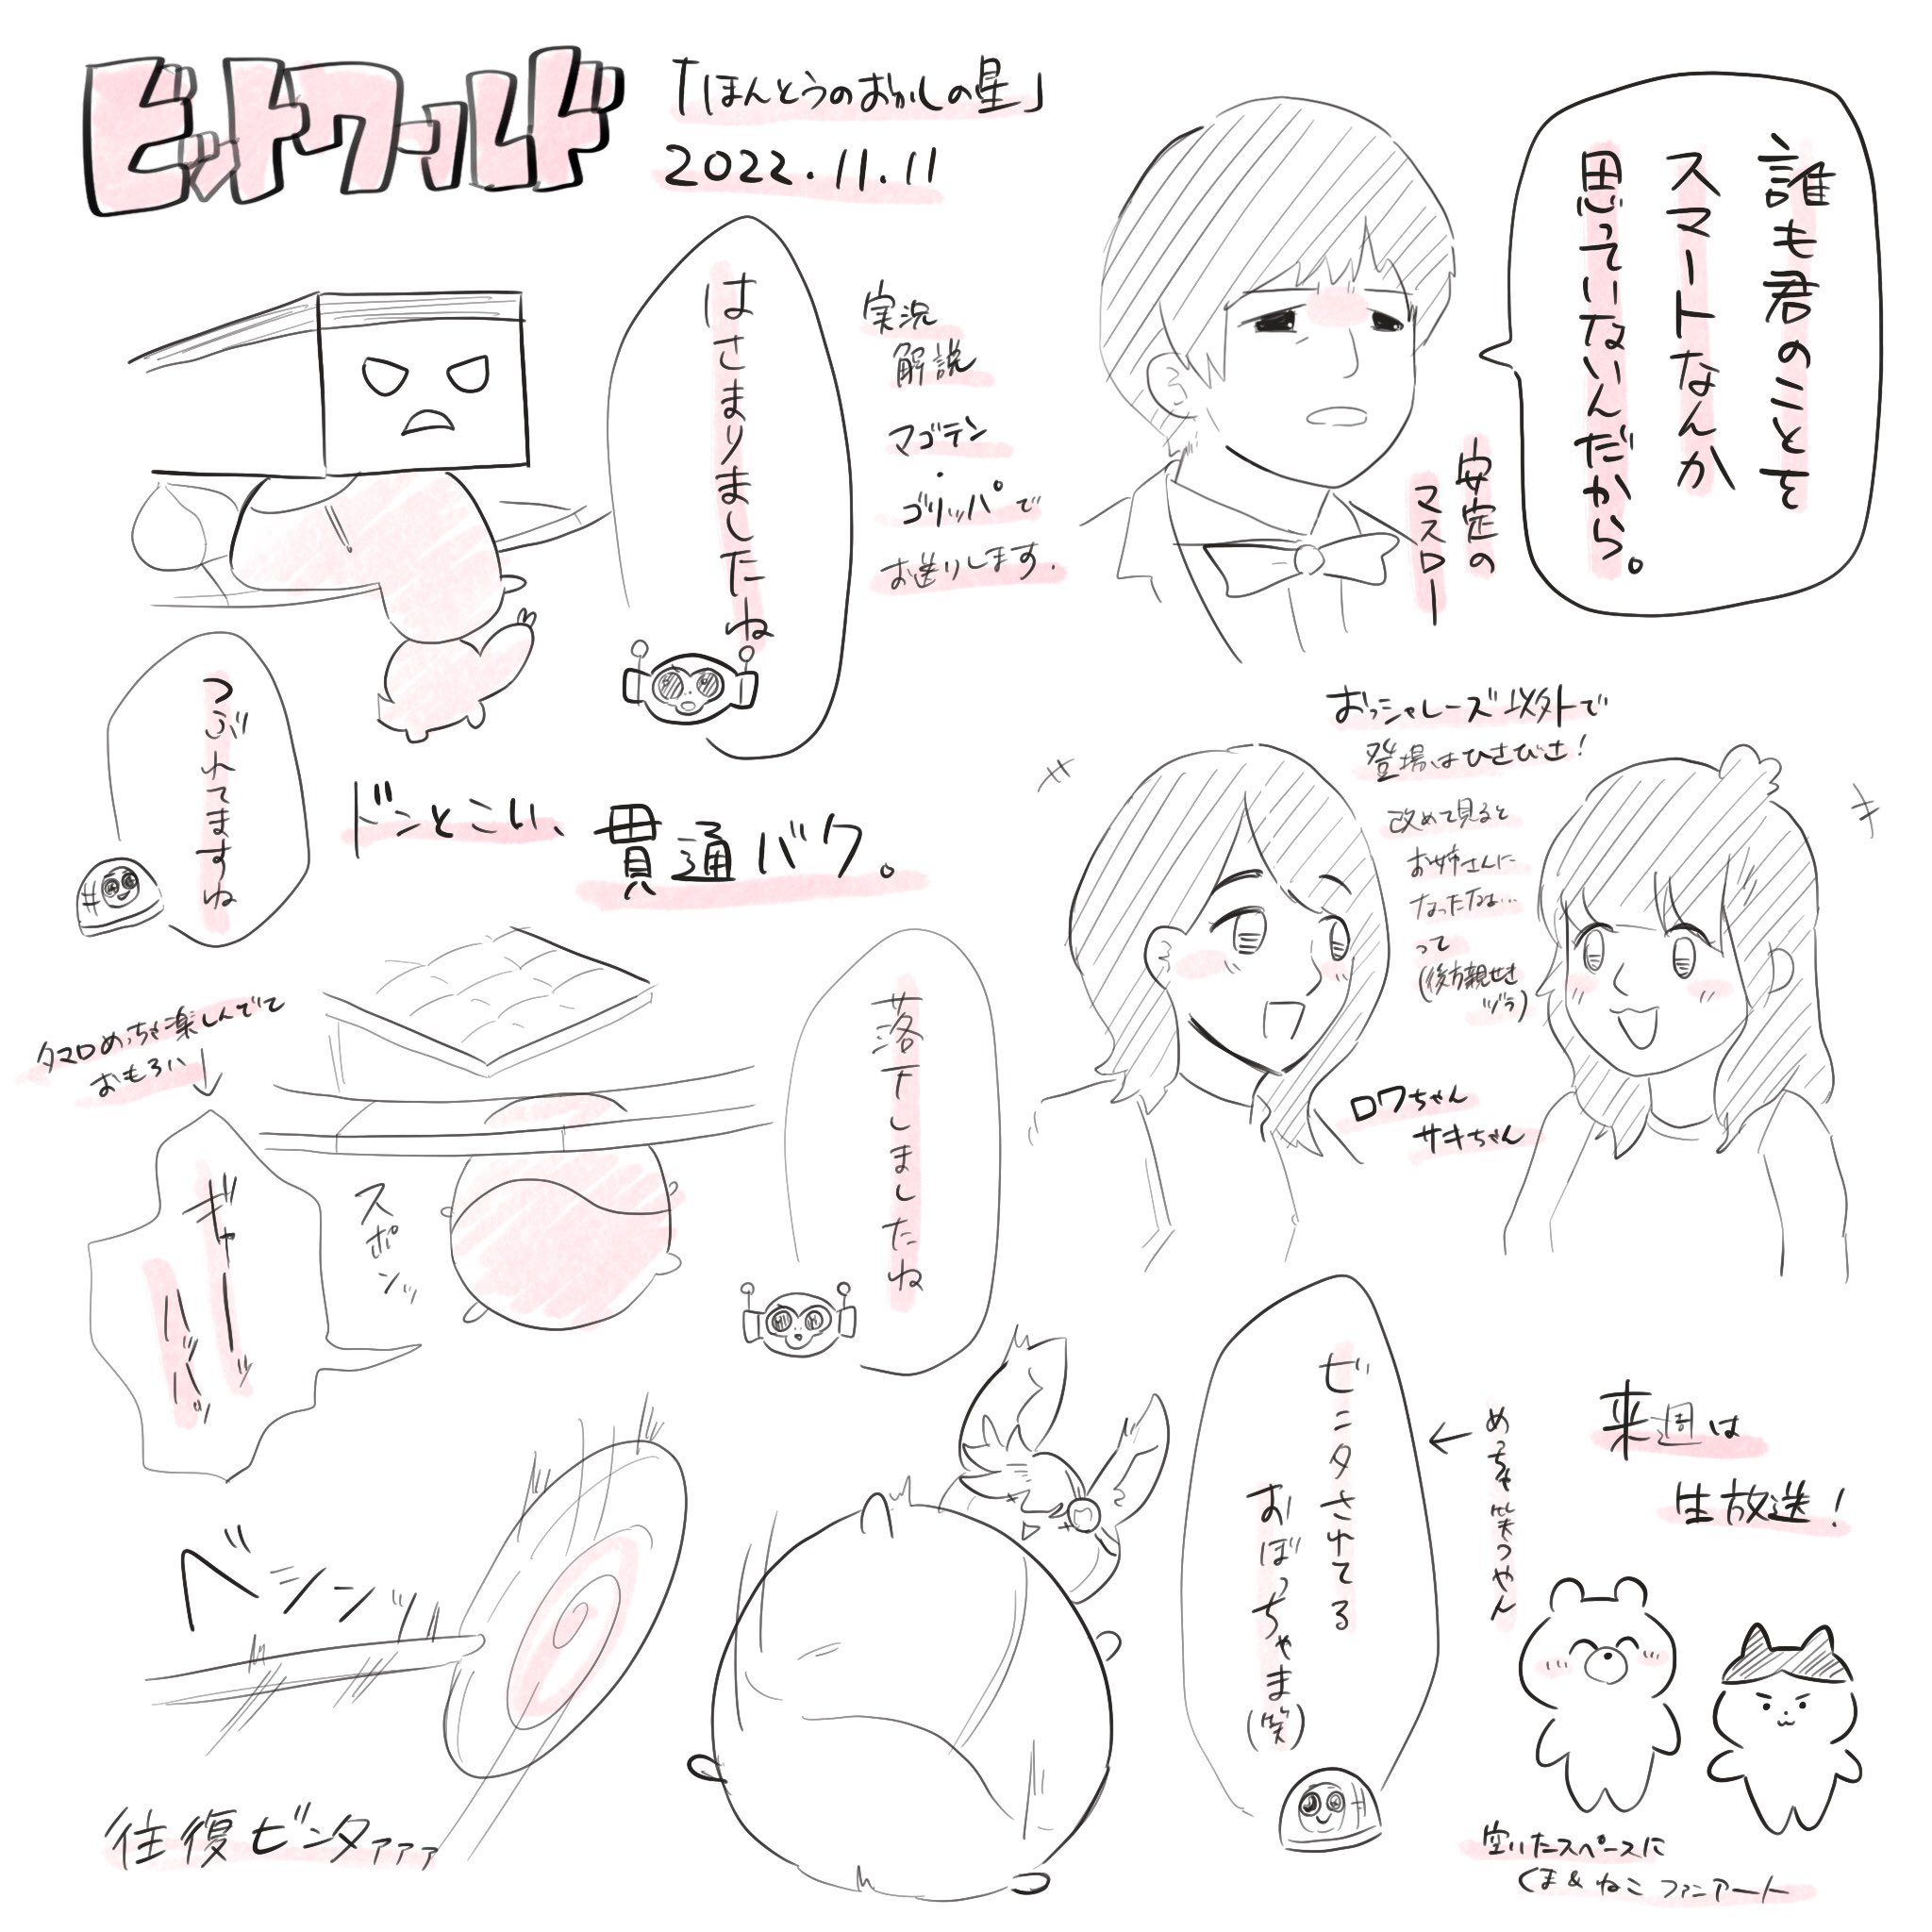 ビットワールド
「ほんとうのおかしの星」
2022.11.11
誰も君のことを
スマートなんか
思っていないんだから。
安定の
マスロー
はさまりましたね
実況
解説
マゴテン
・
ゴリッパで
お送りします.
つぶれてますね
ドンとこい、
貫通バク。
おっシャレーズ以外で
登場はひさびさ!
改めて見ると
お姉さんに
なったなぁ…
って
(後方親せき
ヅラ)
ロワちゃん
サキちゃん
タマロめっちゃ楽しんでて
おもろい
ギャーーッ
ハッハッ
スポンッ
落下しましたね
ベシーンッ
往復ビンタァァァ
ビンタされてる
おぼっちゃま(笑)
めっちゃ笑うやん
来週は
生放送!
空いたスペースに
くま&ねこ ファンアート